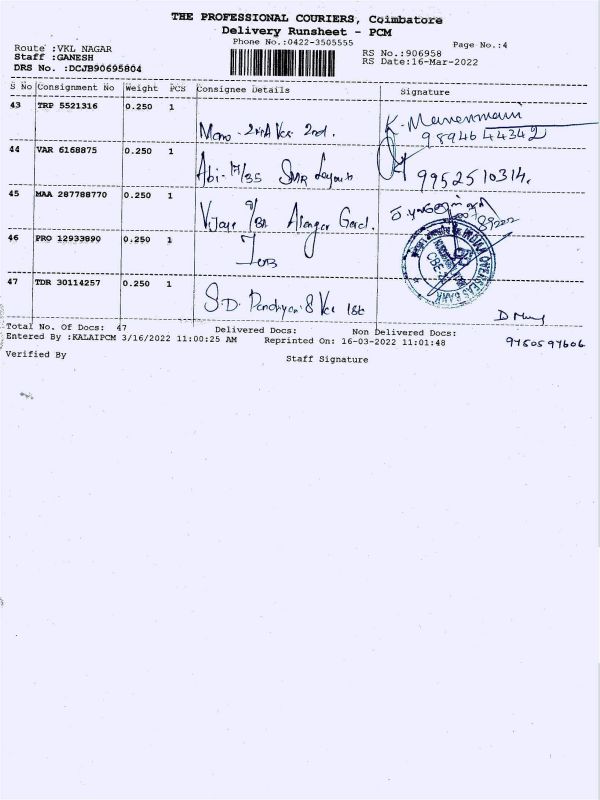 THE PROFESSIONAL COURIERS, Coimbatore
Delivery Runsheet - PCM
Phone No.:0422-3505555
Page No.:4
Route :VKL NAGAR
RS No.:906958
Staff :GANESH
RS Date:16-Mar-2022
DRS No. :DCJB90695804
S No Consignment No Weight PCS Consignee Details Signature
43 TRP 5521316 0.250 1
Mano 2nd. K. Manenmani
98946 44342
44 VAR 6168875 0.250 1
Abi- 17/35 SMR Layout 9952510314.
45 MAA 287788770 0.250 1
Vijaya Alangar Gard.
46 PRO 12933890 0.250 1
IOB
INDIAN OVERSEAS BANK
47 TDR 30114257 0.250 1
S.D. Pandiyan 8
Total No. Of Docs: 47 Delivered Docs: Non Delivered Docs:
Entered By :KALAIPCM 3/16/2022 11:00:25 AM Reprinted On: 16-03-2022 11:01:48
9750597606
Verified By Staff Signature